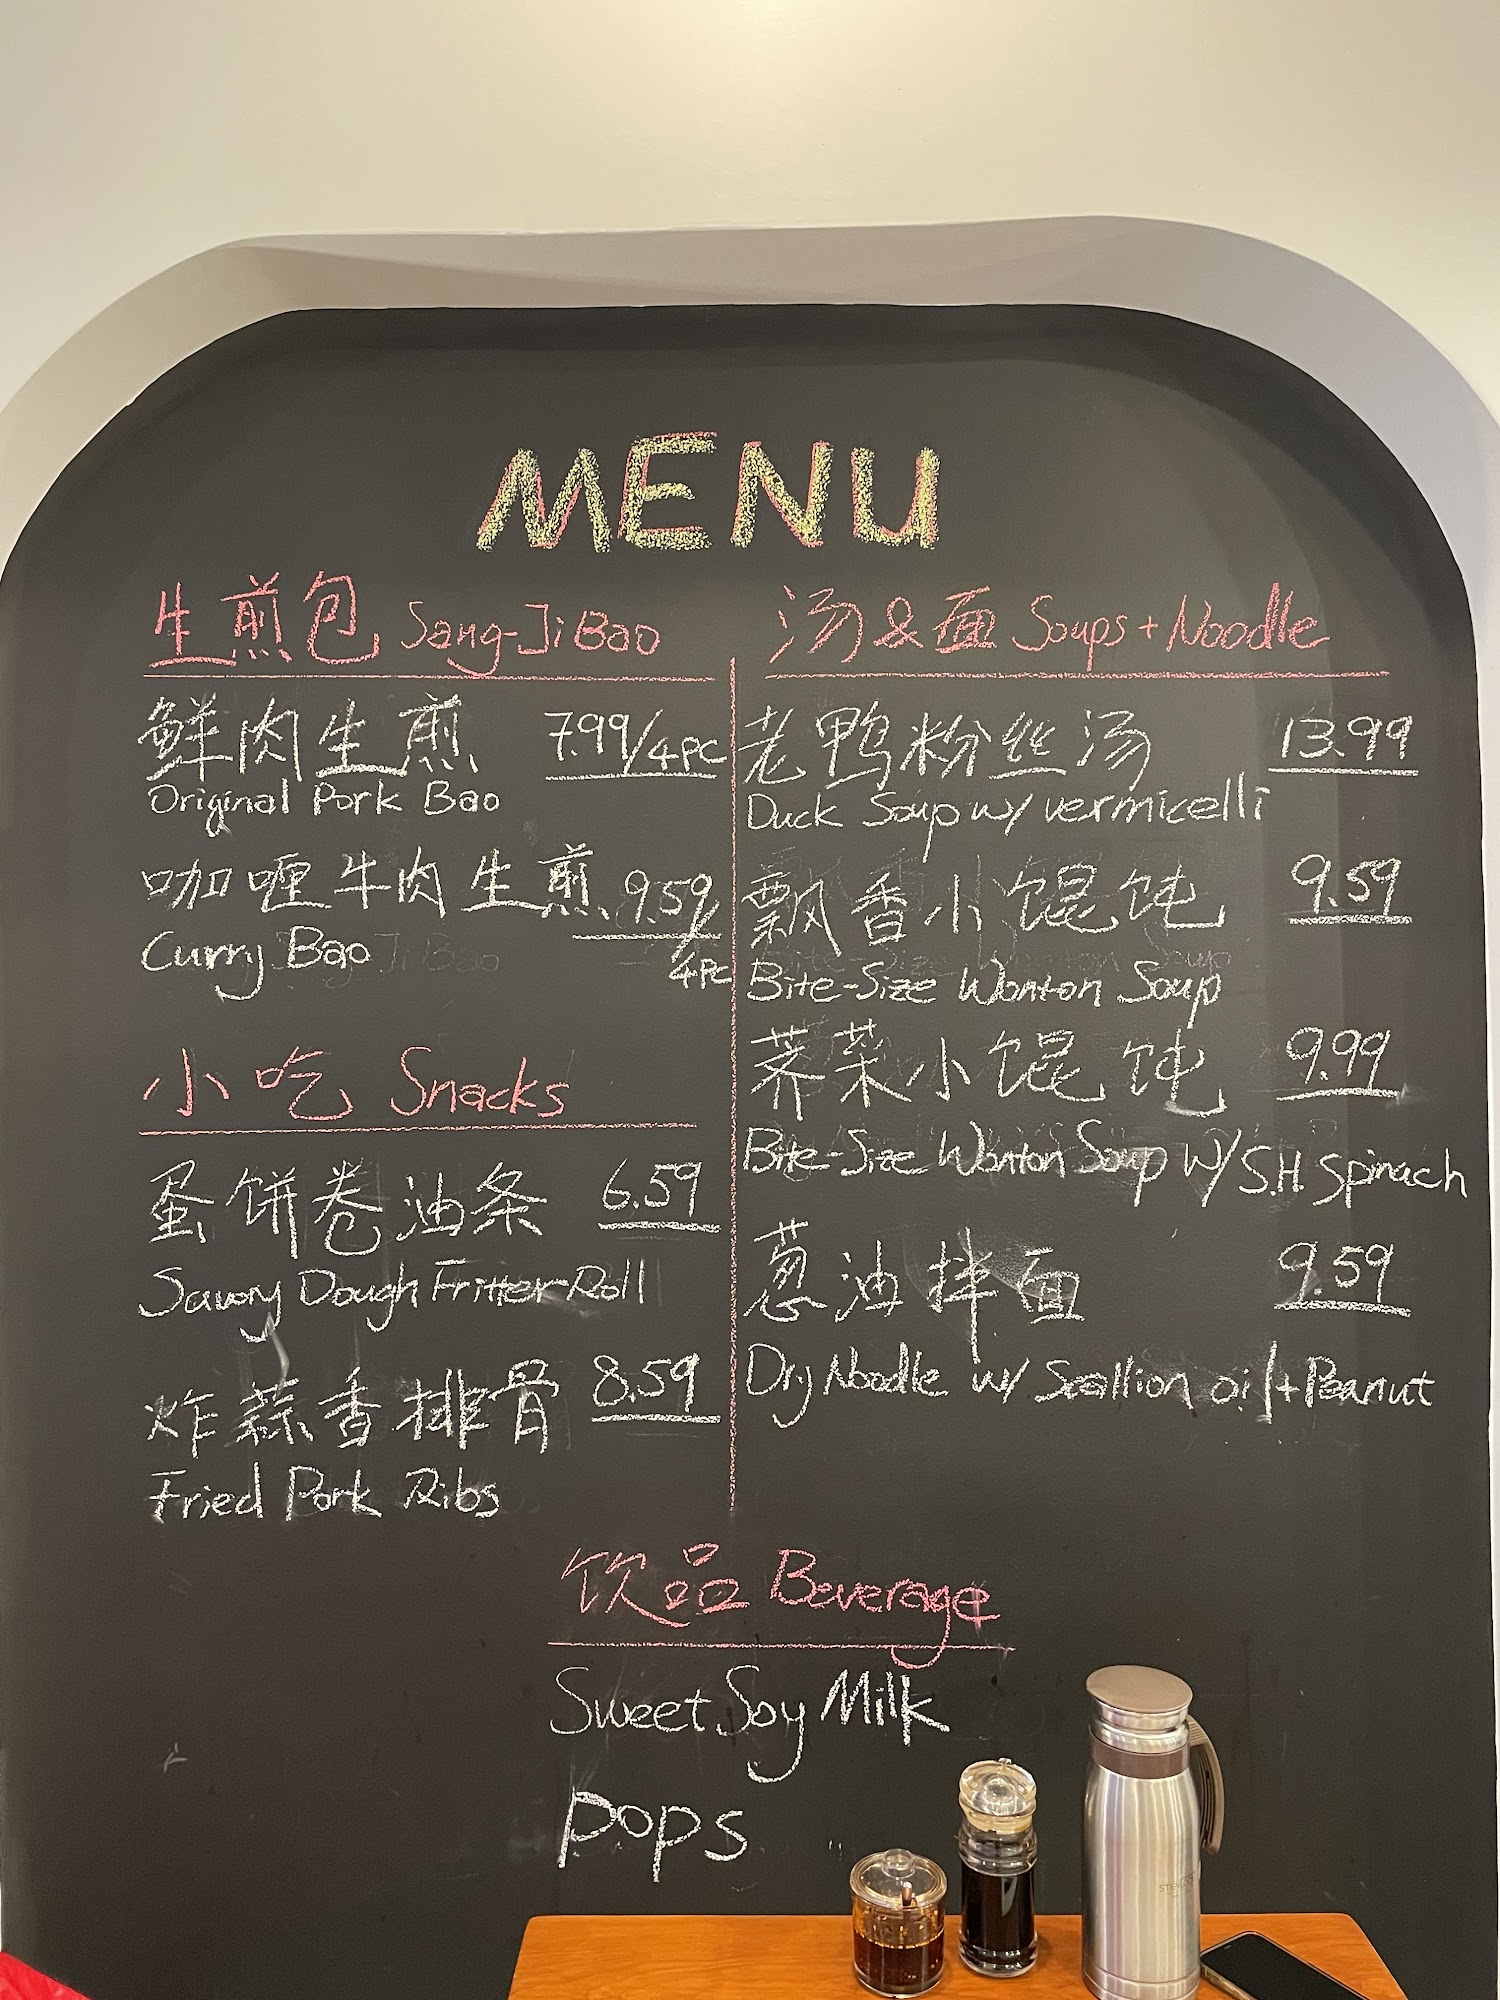 MENU
生煎包 Sang-Ji Bao
鲜肉生煎 7.99/4PC
Original Pork Bao
咖喱牛肉生煎 9.59/4PC
Curry Bao
小吃 Snacks
蛋饼卷油条 6.59
Savory Dough Fritter Roll
炸蒜香排骨 8.59
Fried Pork Ribs
汤&面 Soups + Noodle
老鸭粉丝汤 13.99
Duck Soup w/ vermicelli
飘香小馄饨 9.59
Bite-Size Wonton Soup
荠菜小馄饨 9.99
Bite-Size Wonton Soup w/ S.H. Spinach
葱油拌面 9.59
Dry Noodle w/ Scallion oil + Peanut
饮品 Beverage
Sweet Soy Milk
Pops